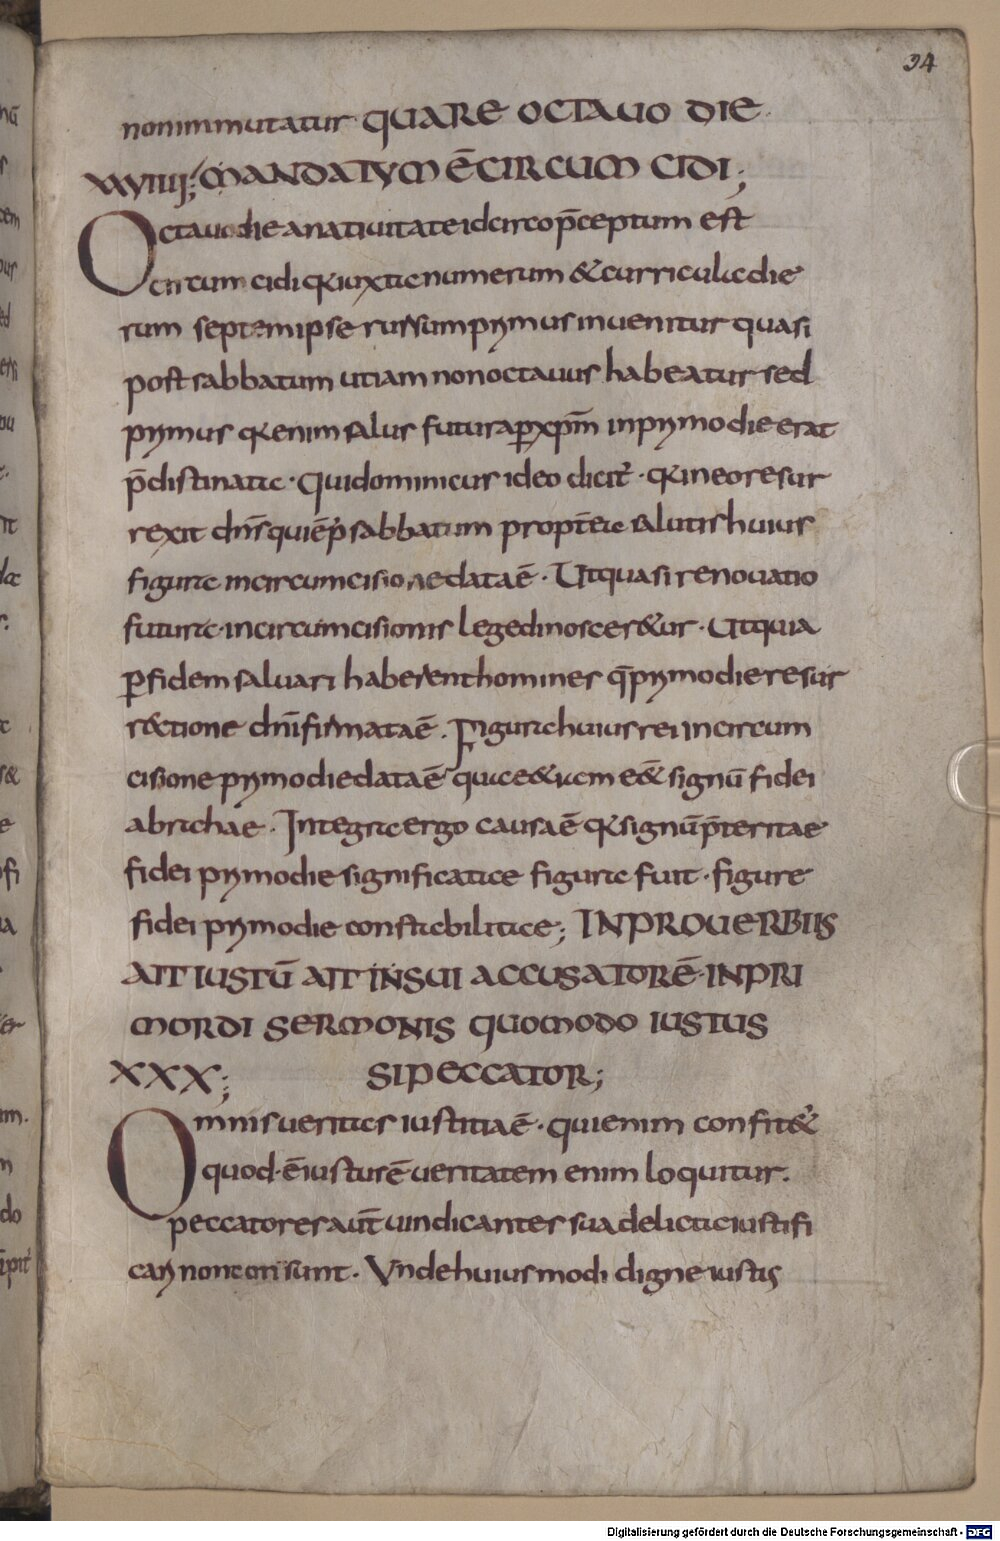 94
non immutatur QUARE OCTAUO DIE
XXVIIII; MANDATUM Ē CIRCUMCIDI;
Octauo die a natiuitate idcirco p̄ceptum est
circumcidi q̄ iuxta numerum & curricula die
rum septem ipse rursum prımus inuenitur quasi
post sabbatum utiam non octauus habeatur sed
primus q̄ enim salus futura ꝑ xp̄m in primo die erat
p̄distinata · Qui dominicus ideo dicit̄ · q̄ in eo resur
rexit dn̄s qui ē p̄ sabbatum propt̄ea salutis huius
figura in circumcisione data ē · Ut quasi renouatio
futura · in circumcisionis lege dinosceretur · Ut quia
ꝑ fidem saluari haberent homines q̄ primo die resur
rectione dn̄i firmata ē . Figura huius rei in circum
cisione primo die data ē quae & uem e& signū fidei
abrahae . Integra ergo causa ē q̄ signū p̄teritae
fidei primo die significatae figura fuit · figure
fidei primo die constabilitae; IN PROUERBIIS
AIT IUSTŪ AIT IN SUI ACCUSATORĒ · IN PRI
MORDI SERMONIS QUOMODO IUSTUS
XXX; SI PECCATOR;
Omnis ueritas iustitia ē · qui enim confit&ur
quod · ē iustus ē ueritatem enim loquitur .
peccatores aut̄ uindicantes sua delicta iustifi
cari non conisunt . Unde huiusmodi digne iustis
Digitalisierung gefördert durch die Deutsche Forschungsgemeinschaft - DFG